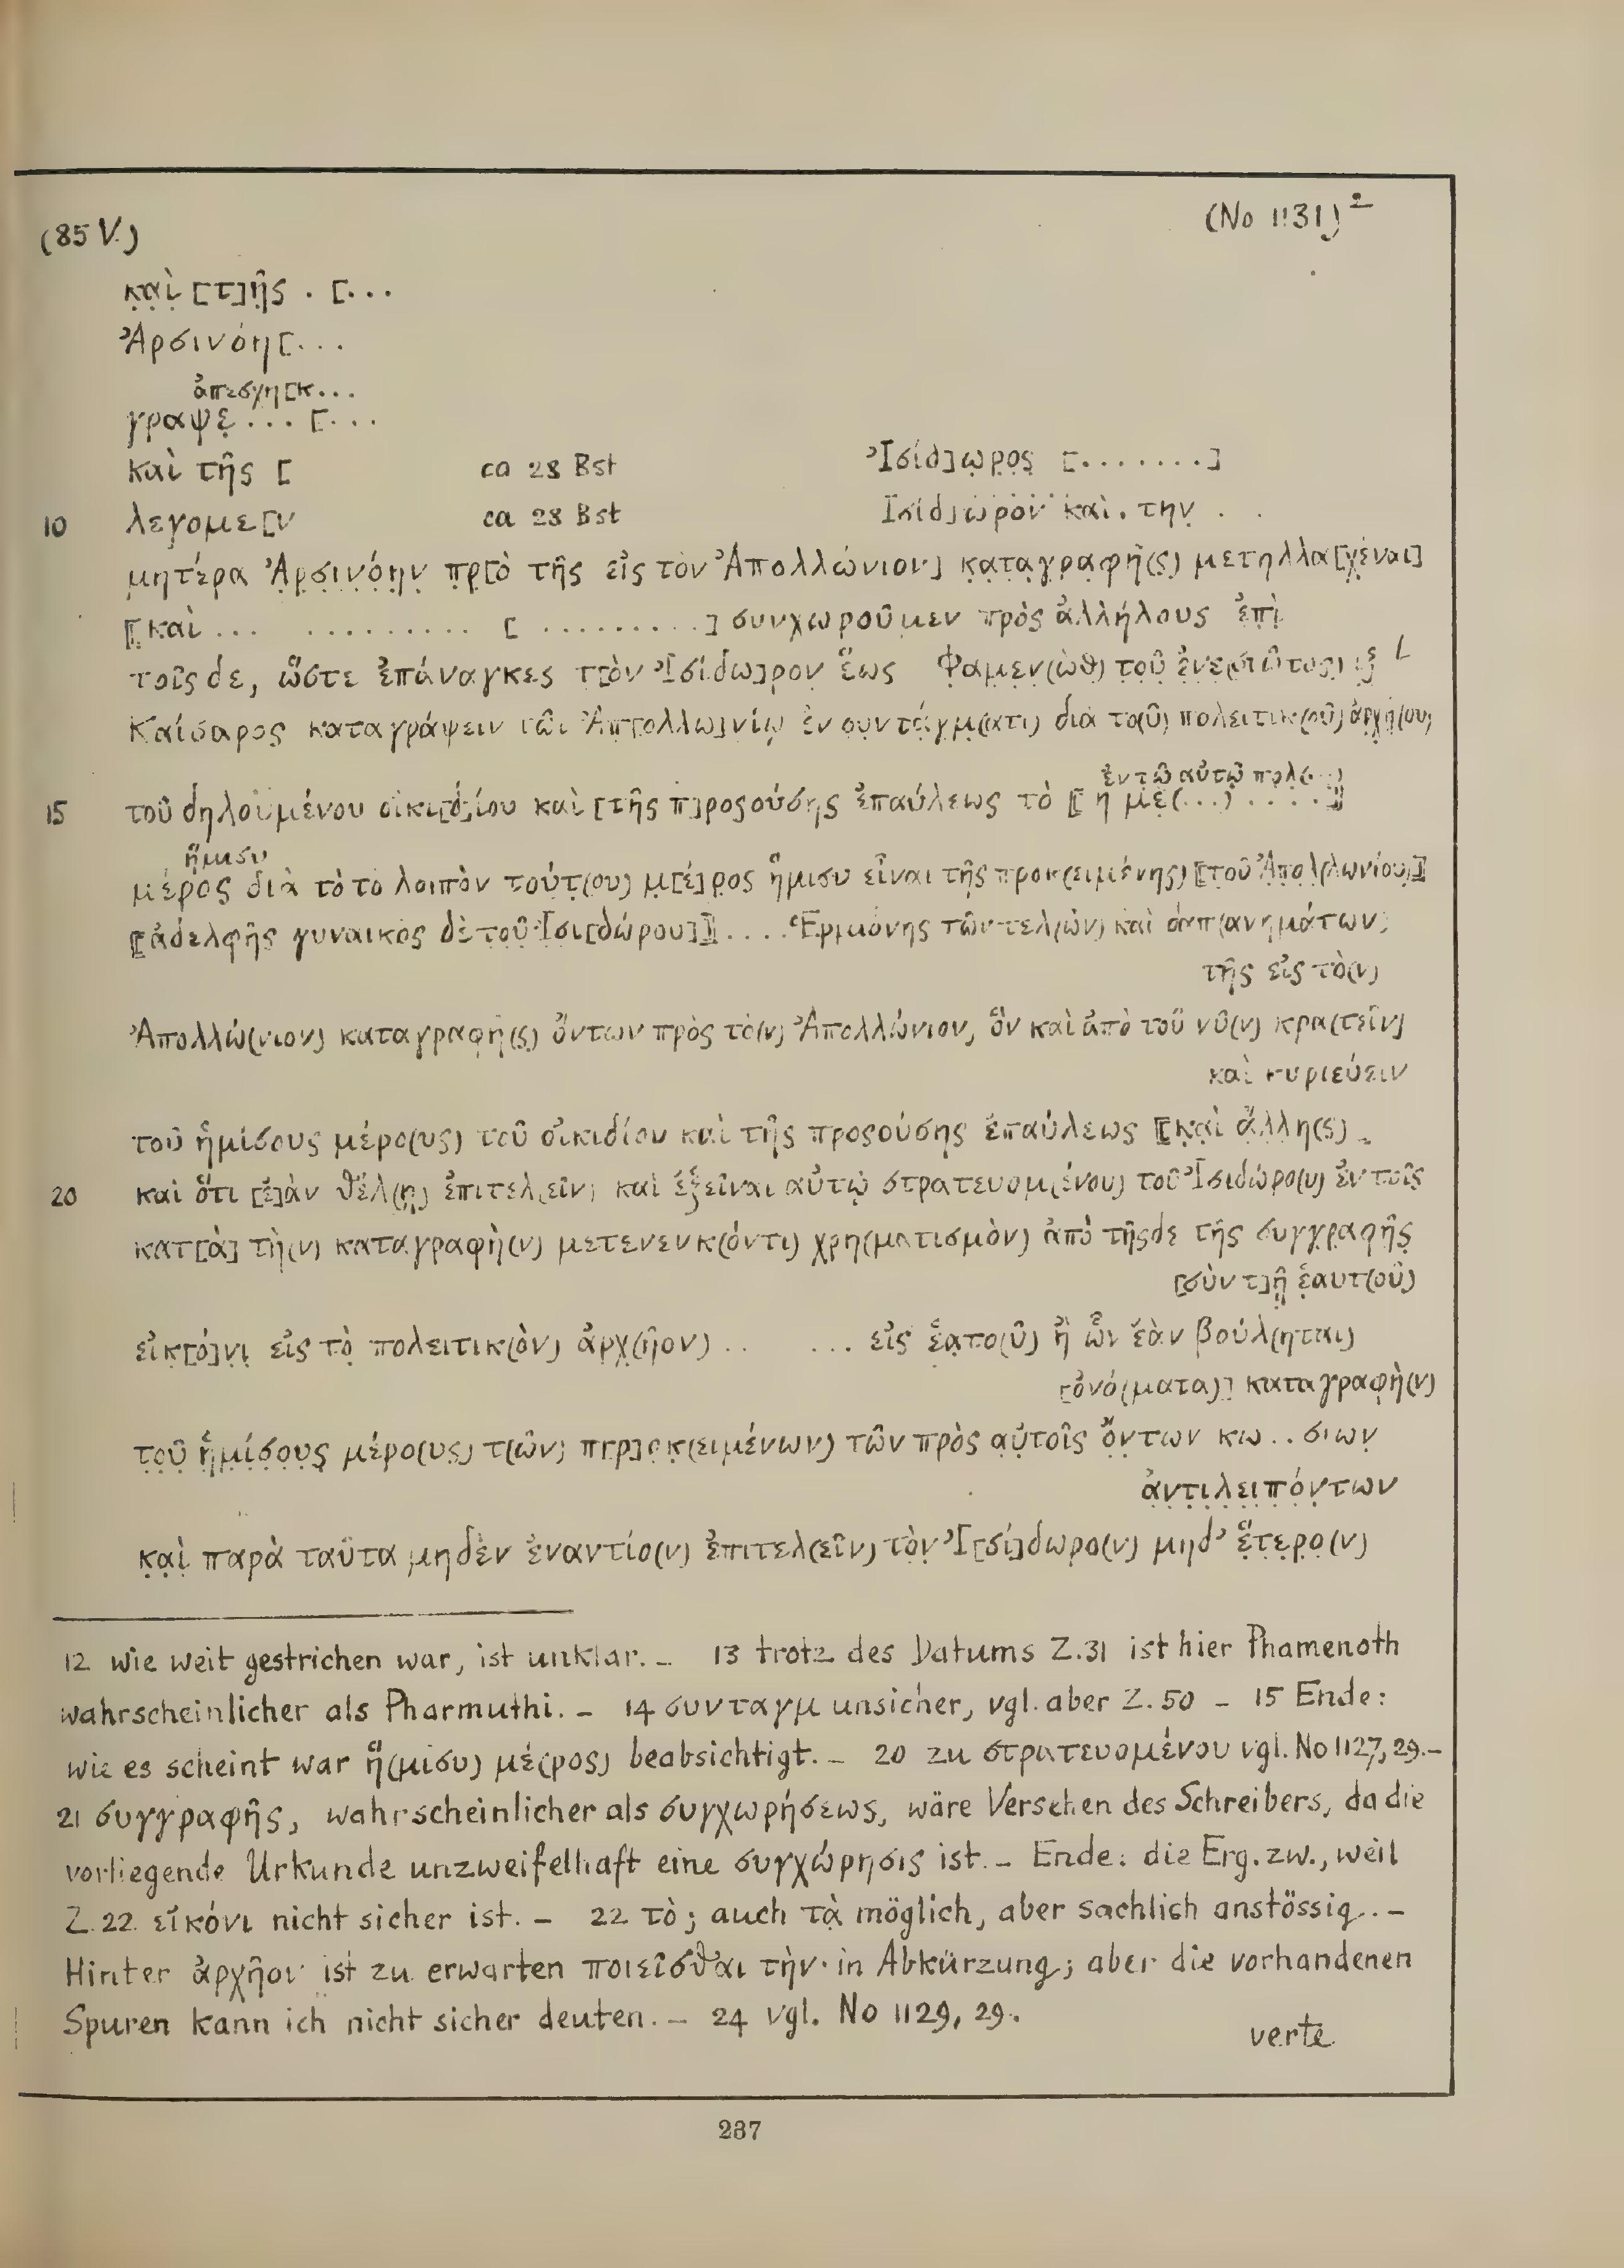 (85 V.)
(No 1131)²
κα̣ὶ̣ [τ]ῆ̣ς . [...
Ἀρσινόη[...
ἀπεσχη[κ...
γραψε̣ ... [...
καὶ τῆς [ ca 28 Bst Ἰσίδ]ω̣ρ̣ο̣ς̣ [.......]
10 λεγομε[ν ca 28 Bst Ἰσίδ]ωρον καὶ . την̣ . .
μητέρα Ἀ̣ρ̣σ̣ι̣ν̣ό̣η̣ν̣ π̣ρ̣[ὸ τῆς εἰς τὸν Ἀπολλώνιον] κ̣α̣τ̣α̣γ̣ρ̣α̣φ̣ῆ̣(ς̣) μετηλλα[χέναι]
[[καὶ ... ......... [ .........] συνχωροῦμεν πρὸς ἀλλήλους ἐπὶ̣
τοῖςδε, ὥστε ἐπάναγκες τ[ὸν Ἰσίδω]ρον̣ ἕ̣ως Φ̣α̣μ̣ε̣ν̣(ὼθ̣) το̣ῦ̣ ἐ̣ν̣ε̣(στῶτος) ιξ̣ L
Καίσαρος καταγράψειν τῶι Ἀπ̣[ολλω]νίῳ ἐν συντάγμ̣(ατι) διὰ το(ῦ) πολειτικ(οῦ) ἀρχή(ου)
ἐν τῶ αὐτῷ
15 τοῦ δηλουμένου οἰκι[δ]ίου καὶ [τῆς π]ροςούσης ἐπαύλεως τὸ [[ ἡ με̣(...) ....]]
ἥμισυ
μέρος διὰ τὸ τὸ λοιπὸν τούτ̣(ου) μ̣[έ]ρ̣ος ἥμισυ εἶναι τῆς προκ(ειμένης) [[τοῦ Ἀ̣π̣ο̣λ̣(λωνίου)]]
[[ἀδελφῆς γυναικὸς δὲ το̣ῦ̣ Ἰσι[δώρου]]] .... Ἑρμιόνης τῶν τελ(ῶν) καὶ δαπ(ανημάτων)
τῆς εἰς τὸ(ν)
Ἀπολλώ(νιον) καταγραφῆ(ς̣) ὄντων πρὸς τὸ(ν) Ἀπολλώνιον, ὃν καὶ ἀπὸ τοῦ νῦ(ν) κρα(τεῖν)
καὶ κυριεύειν
τοῦ ἡμίσους μέρο(υς) τοῦ οἰκιδίου καὶ τῆς προςούσης ἐπαύλεως [[κ̣α̣ὶ̣ ἄλλη(ς)
20 καὶ ὅτι [ἐ]ὰν θέλ(ῃ) ἐπιτελ(εῖν) καὶ ἐξεῖναι αὐτῷ στρατευομ(ένου) τοῦ Ἰσιδώρο(υ) ἐν τοῖς
κατ[ὰ] τὴ(ν) καταγραφὴ(ν) μετενενκ(όντι) χρη(ματισμὸν) ἀπὸ τῆςδε τῆς συγγραφῆς̣
[σὺν τ]ῇ̣ ἑ̣αυτ(οῦ)
εἰκ̣[ό]ν̣ι̣ εἰς τὸ̣ πολειτικ(ὸν) ἀρχ(ῆον) .. ... εἰς ἑα̣το(ῦ) ἢ ὧν ἐὰν βούλ(ηται)
[ὀνό(ματα)] καταγραφὴ(ν)
το̣ῦ̣ ἡ̣μ̣ί̣σ̣ο̣υ̣ς̣ μέρο(υς) τ(ῶν) π[ρ]οκ̣(ειμένων) τῶν πρὸς αὐ̣τοῖς ὄ̣ν̣των κω..σιων̣
ἀ̣ν̣τ̣ι̣λ̣ε̣ι̣π̣ό̣ν̣των
κ̣α̣ὶ̣ παρὰ ταῦτα μηδὲν ἐναντίο(ν) ἐπιτελ(εῖν) τὸν̣ Ἰ[σί]δωρο(ν) μηδ' ἕ̣τ̣ε̣ρ̣ο̣(ν)
12 wie weit gestrichen war, ist unklar. – 13 trotz des Datums Z.31 ist hier Phamenoth
wahrscheinlicher als Pharmuthi. – 14 συνταγμ unsicher, vgl. aber Z. 50 – 15 Ende:
wie es scheint war ἥ(μισυ) μέ(ρος) beabsichtigt. – 20 zu στρατευομένου vgl. No 1127, 29. –
21 συγγραφῆς, wahrscheinlicher als συγχωρήσεως, wäre Versehen des Schreibers, da die
vorliegende Urkunde unzweifelhaft eine συγχώρησις ist. – Ende: die Erg. zw., weil
Z. 22 εἰκόνι nicht sicher ist. – 22 τὸ̣; auch τὰ̣ möglich, aber sachlich anstössig. –
Hinter ἀρχῆον ist zu erwarten ποιεῖσθαι τὴν in Abkürzung; aber die vorhandenen
Spuren kann ich nicht sicher deuten. – 24 vgl. No 1129, 29.
verte
237